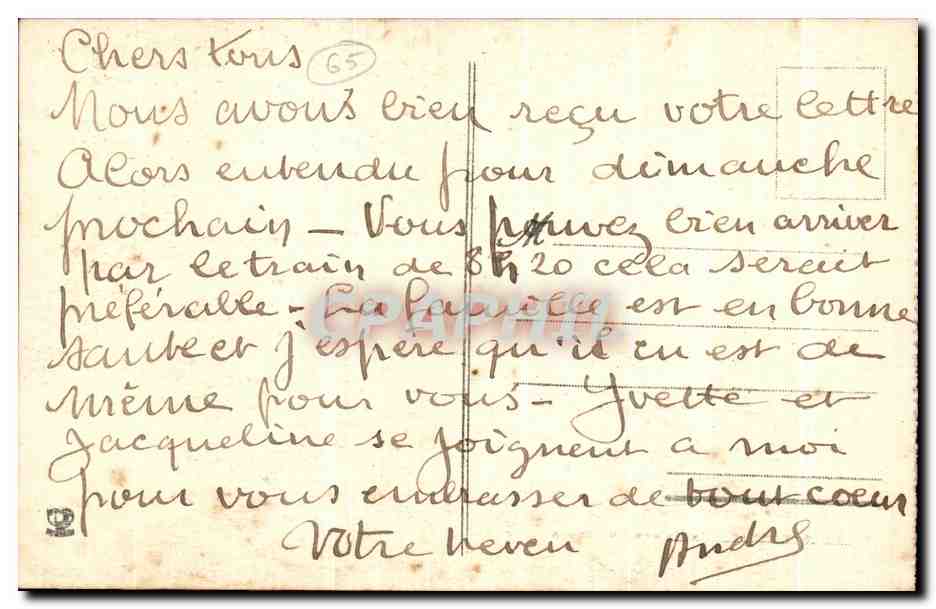 Chers tous
65
Nous avons bien reçu votre lettre
Alors entendu pour dimanche
prochain - Vous pouvez bien arriver
par le train de 8h20 cela serait
préférable - La famille est en bonne
santé et j'espère qu'il en est de
même pour vous - Yvette et
Jacqueline se joignent a moi
pour vous embrasser de tout coeur
Votre neveu André
CPAPHIL